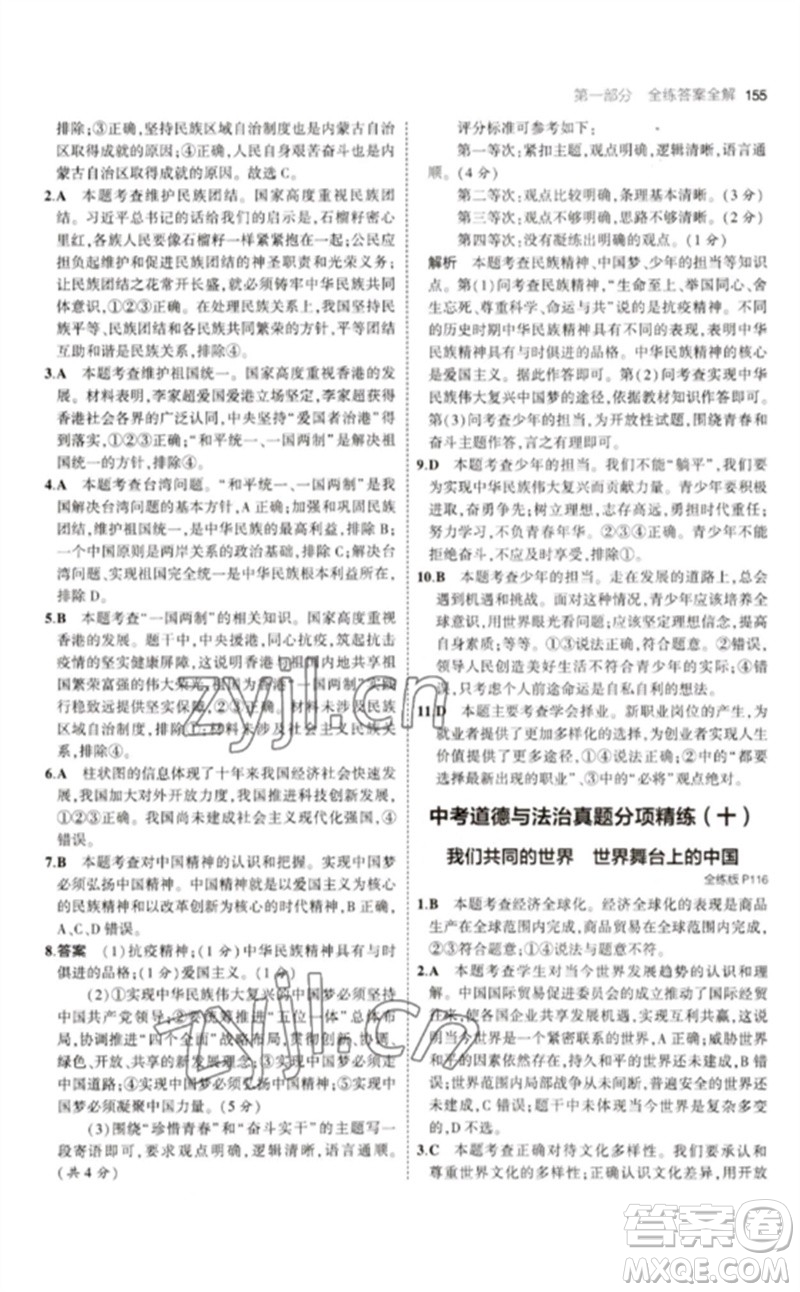 第一部分 全练答案全解 155
排除;③正确,坚持民族区域自治制度也是内蒙古自治
区取得成就的原因;④正确,艰苦奋斗也是内蒙古自治
区取得成就的原因。故选 C。
2.A 本题考查维护民族团结。国家高度重视民族团
结。习近平总书记的话给我们的启示是,石榴籽密心
里红,各族人民要像石榴籽一样紧紧抱在一起;公民应
自觉履行维护民族团结的神圣职责和光荣义务;
让民族团结之花常开长盛,就必须铸牢中华民族共同
体意识,①②③正确。在处理民族关系上,我国坚持民
族平等、民族团结和各民族共同繁荣的方针,平等团结
互助和谐是民族关系,排除④。
3.A 本题考查维护祖国统一。国家高度重视香港的发
展。材料表明,李家超爱国爱港立场坚定,李家超获得
香港社会各界的广泛认同,中央坚持“爱国者治港”得
到落实,①②正确;“和平统一、一国两制”是解决祖
国统一的方针,排除③④。
4.A 本题考查台湾问题。“和平统一、一国两制”是我
国解决台湾问题的基本方针,A 正确;加强和巩固民族
团结,维护祖国统一,是中华民族的最高利益,排除 B;
一个中国原则是两岸关系的政治基础,排除 C;解决台
湾问题,实现祖国完全统一是中华民族根本利益所在,
排除 D。
5.B 本题考查“一国两制”的相关知识。国家高度重视
香港的发展。题干中,中央援港,同心抗疫,构筑起抗击
疫情的坚实健康屏障,
国繁荣富强的伟大荣光,
行稳致远,①③正确;材料未涉及
排除④。
6.A 柱状图的信息体现了十年来我国经济社会快速发
展,国家富强,日益强大,我国推进科技创新,①②③
正确。我国尚未建成社会主义现代化强国,④错误。
7.B 本题考查对中国精神的认识和把握。实现中国梦
必须弘扬中国精神。中国精神就是以爱国主义为核心的
民族精神和以改革创新为核心的时代精神,B 正确,
A、C、D 错误。
8.答案 (1)抗疫精神;(1 分)中华民族精神具有与时
俱进的品格;(1 分)爱国主义。(1 分)
(2)①实现中华民族伟大复兴的中国梦必须坚持
中国共产党领导;②要统筹推进“五位一体”总体布
局,协调推进“四个全面”战略布局,贯彻创新、协调、
绿色、开放、共享的新发展理念;③实现中国梦必须走
中国道路;④实现中国梦必须弘扬中国精神;⑤实现中国
梦必须凝聚中国力量。(5 分)
(3)围绕“珍惜青春”和“奋斗实干”的主题,写一
段寄语即可,要求观点明确,逻辑清晰,语言顺畅。
(共 4 分)
评分标准可参考如下:
第一等次:紧扣主题,观点明确,逻辑清晰,语言通
顺。(4 分)
第二等次:观点比较明确,条理基本清晰。(3 分)
第三等次:观点不够明确,思路不够清晰。(2 分)
第四等次:没有凝练出明确的观点。(1 分)
解析 本题考查民族精神、中国梦、少年的担当等知识
点。第(1)问考查民族精神,“生命至上、举国同心、舍
生忘死、尊重科学、命运与共”说的是抗疫精神。不同
的历史时期中华民族精神具有不同的表现,表明中华
民族精神具有与时俱进的品格。中华民族精神的核心
是爱国主义。据此作答即可。第(2)问考查实现中华
民族伟大复兴中国梦的途径,依据教材知识作答即可。
第(3)问考查少年的担当,为开放性试题,围绕青春和
奋斗主题作答,言之有理即可。
9.D 本题考查少年的担当。我们不能“躺平”,我们要
为实现中华民族伟大复兴而贡献力量。青少年要积极
进取,奋勇争先;树立理想,志存高远,勇于承担责任;
努力学习,不负青春年华。②③④正确。青少年不能
拒绝所有诱惑,①错误。
10.B 本题考查少年的担当。走在发展的道路上,总会
遇到机遇和挑战。面对这种情况,青少年应该培养全
球意识,用世界眼光看问题;应该坚定理想信念,提高
自身素质;等等。①③说法正确,符合题意。②错误,
领导人民创造美好生活的是中国共产党。④错误,
只考虑个人前途命运是自私自利的想法。
11.D 本题主要考查学会择业。新职业岗位的产生,为
就业者提供了更加多样化的选择,为创业者实现人生
价值提供了更多渠道,③④正确。②中的“都要
选择最新出现的职业”、①中的“必将”观点绝对。
中考道德与法治真题分项精练(十)
我们共同的世界 世界舞台上的中国
全练版 P116
1.B 本题考查经济全球化。经济全球化的表现是商品
生产在全球范围内完成,商品交易在全球范围内完成,
②③符合题意。①④与题意不符。
2.A 本题考查学生对当今世界发展趋势的认识和理
解。中国国际贸易促进委员会的成立推动了国际经贸
往来,让世界各国企业共享发展机遇,A 符合题意;说
明当今世界是一个紧密联系的世界,B 不选;威胁世界
和平的因素依然存在,持久和平的世界是我们的期望,
C 错误;世界范围内局部战争从未间断,新型安全威胁
不断涌现,说明当今世界是一个复杂多变
的,D 不选。
3.C 本题考查正确对待文化多样性。我们要承认和
尊重世界文化的多样性。正确认识文化差异,用开放
zyjl.cn
zyjl.cn
答案卷
MXQE.COM